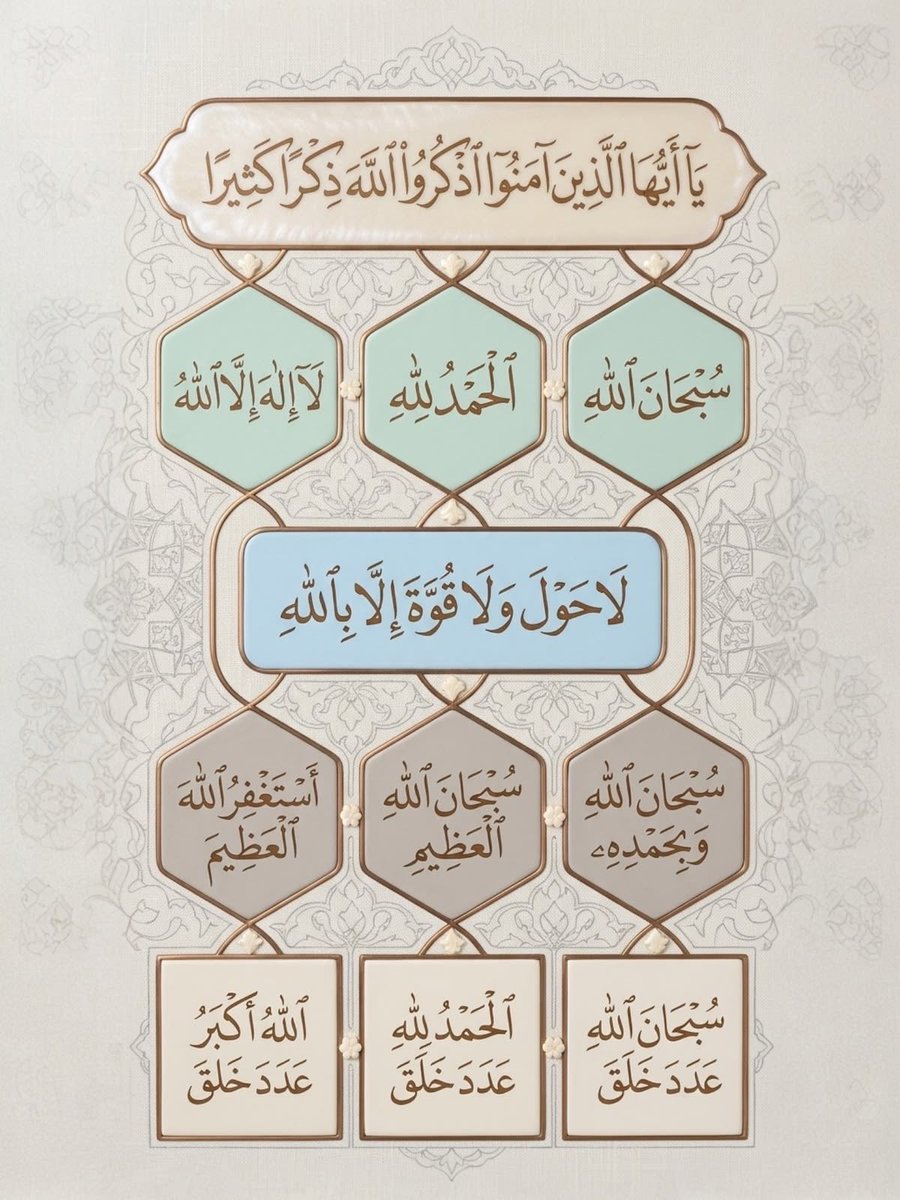 يَآ أَيُّهَا ٱلَّذِينَ آمَنُوٓا ٱذْكُرُواْ ٱللَّهَ ذِكْرًا كَثِيرًا
سُبْحَانَ ٱللهِ
ٱلْحَمْدُ لِلهِ
لَآ إِلٰهَ إِلَّا ٱللهُ
لَا حَوْلَ وَلَا قُوَّةَ إِلَّا بِٱللهِ
سُبْحَانَ ٱللهِ
وَبِحَمْدِهِۦ
سُبْحَانَ ٱللهِ
ٱلْعَظِيمِ
أَسْتَغْفِرُ ٱللهَ
ٱلْعَظِيمَ
سُبْحَانَ ٱللهِ
عَدَدَ خَلَقَ
ٱلْحَمْدُ لِلهِ
عَدَدَ خَلَقَ
ٱللهُ أَكْبَرُ
عَدَدَ خَلَقَ